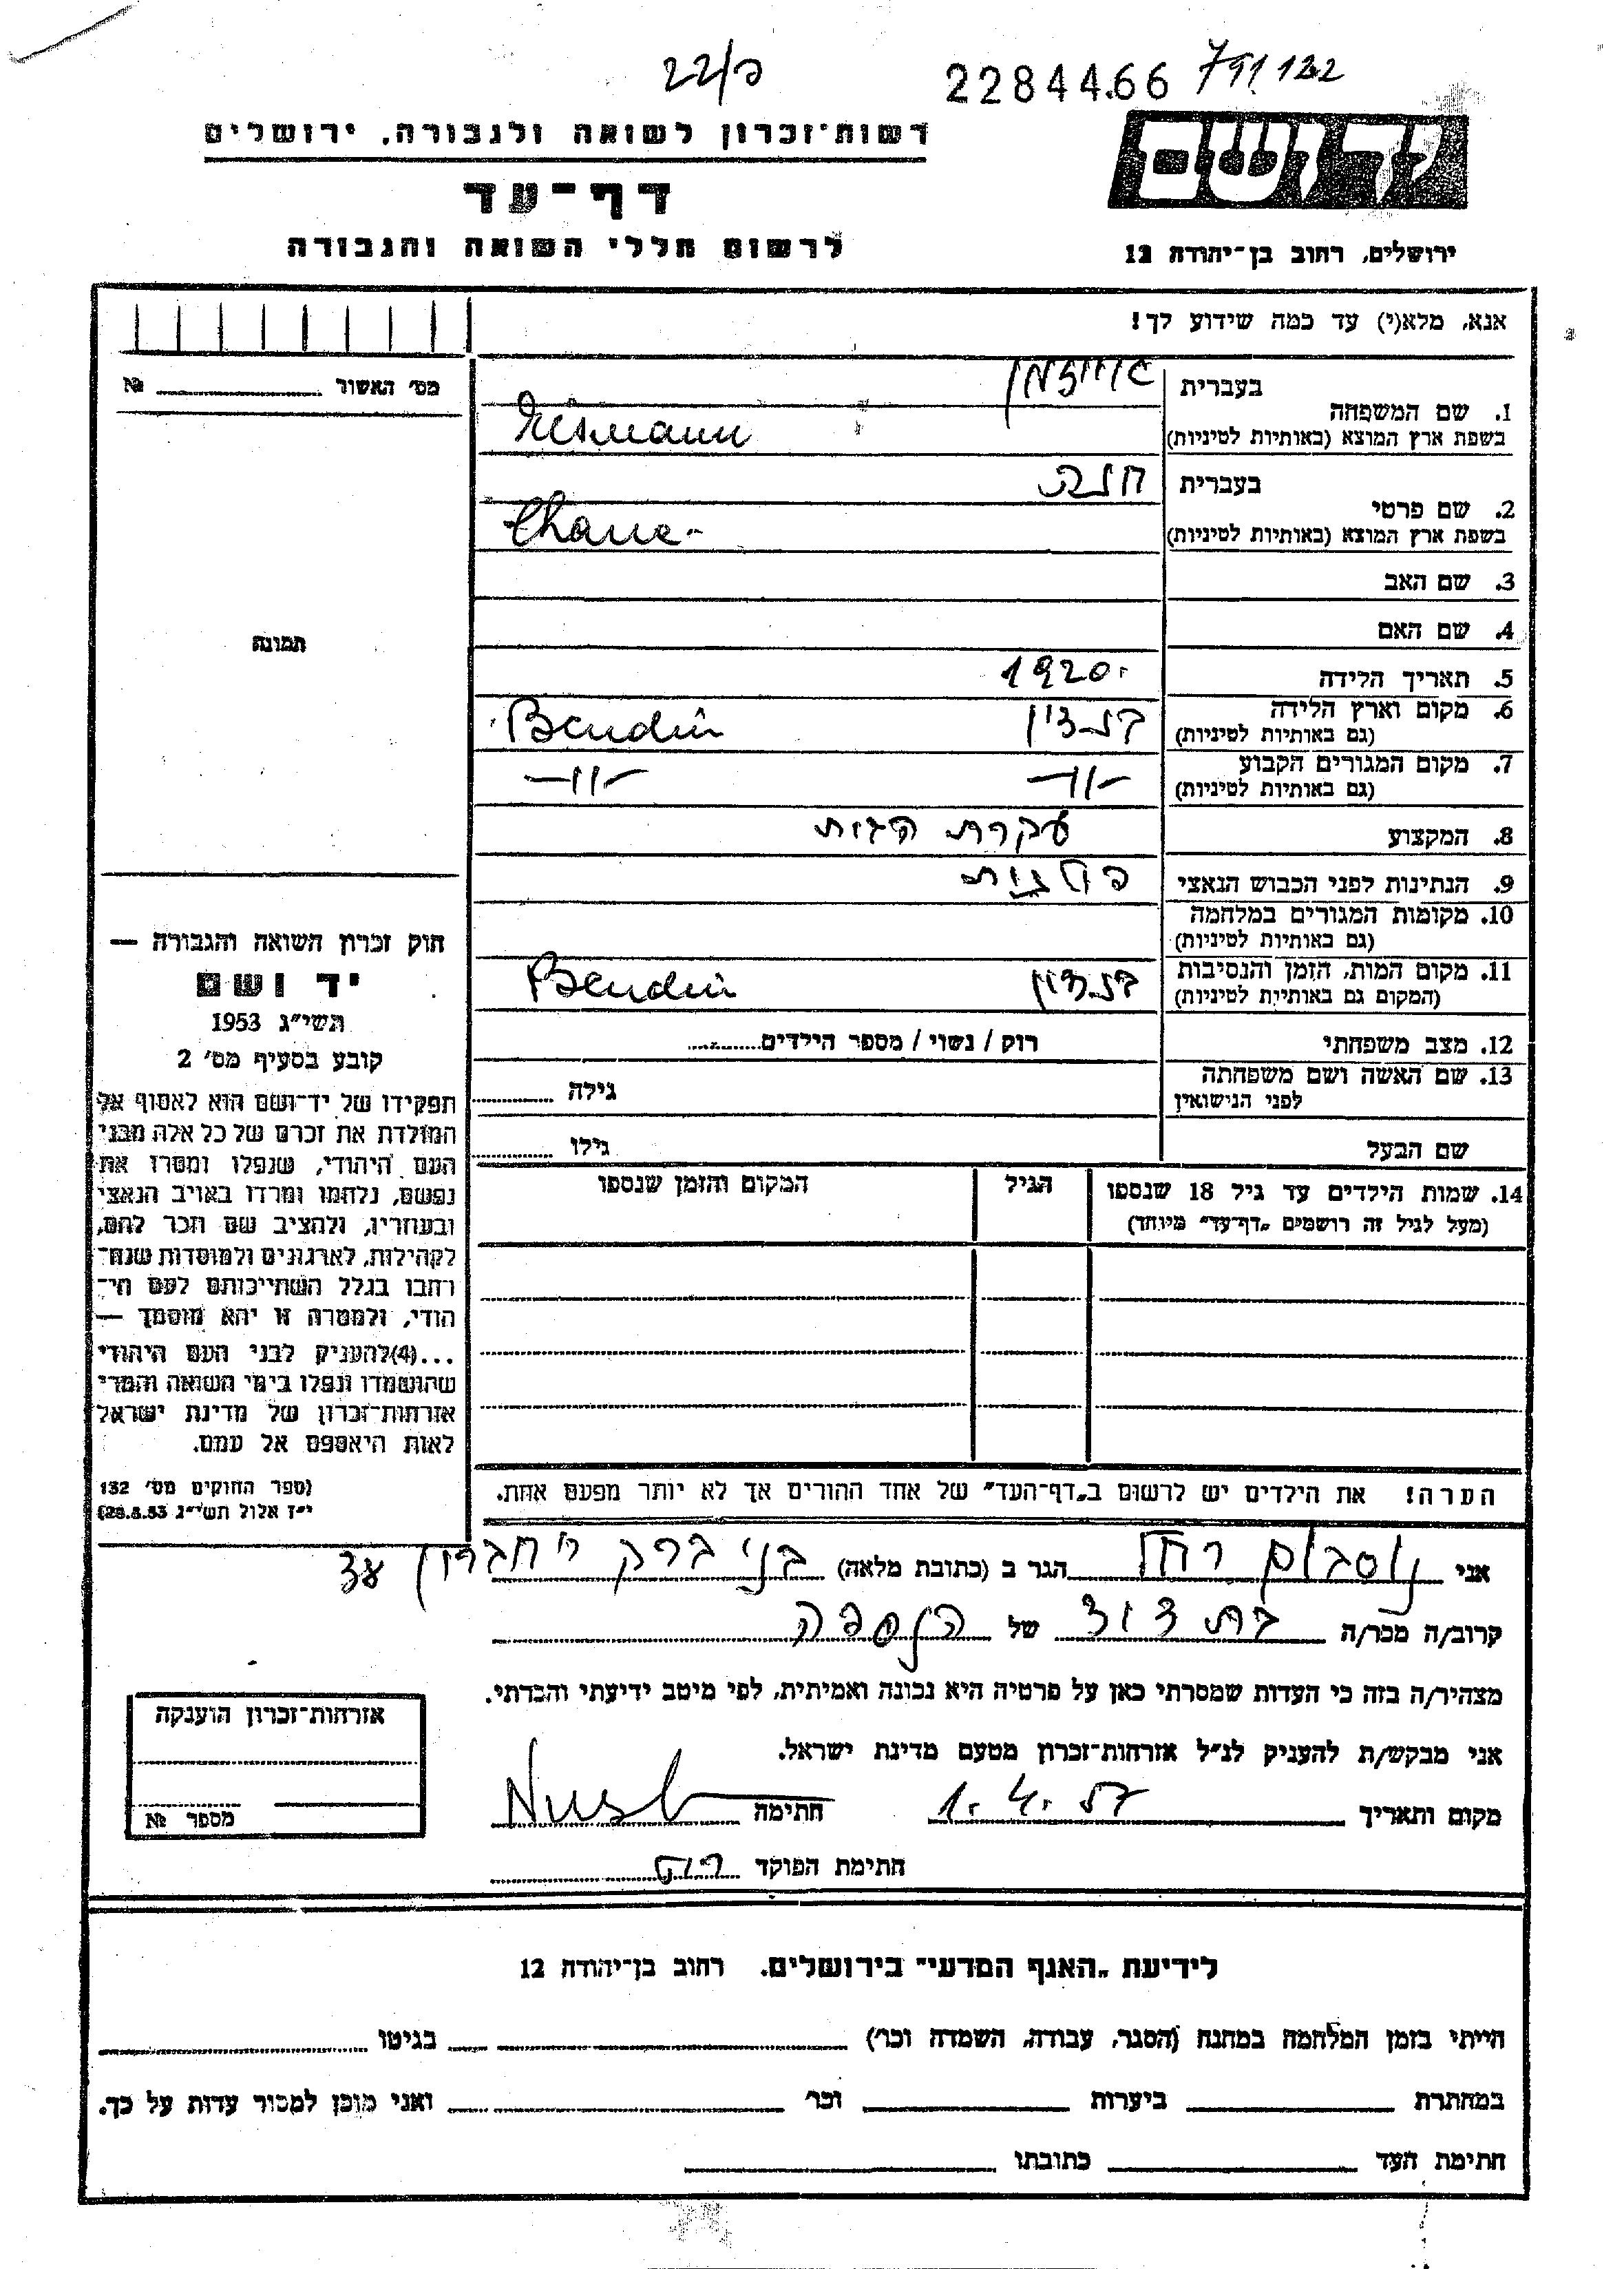 22/פ
2284466 791/122
יד ושם
רשות־זכרון לשואה ולגבורה, ירושלים
דף־עד
לרשום חללי השואה והגבורה
ירושלים, רחוב בן־יהודה 12
אנא, מלא(י) עד כמה שידוע לך!
מס' האשור №
בעברית
1. שם המשפחה
בשפת ארץ המוצא (באותיות לטיניות)
בעברית חנה
2. שם פרטי
בשפת ארץ המוצא (באותיות לטיניות) Chane
3. שם האב
4. שם האם
תמונה
5. תאריך הלידה 1920
6. מקום וארץ הלידה בנדין Bendin
(גם באותיות לטיניות)
7. מקום המגורים הקבוע -"- -"-
(גם באותיות לטיניות)
8. המקצוע עקרת הבית
9. הנתינות לפני הכבוש הנאצי פולנית
10. מקומות המגורים במלחמה
(גם באותיות לטיניות)
11. מקום המות, הזמן והנסיבות בנדין Bendin
(המקום גם באותיות לטיניות)
12. מצב משפחתי רוק / נשוי / מספר הילדים
13. שם האשה ושם משפחתה גילה
לפני הנישואין
שם הבעל גילו
14. שמות הילדים עד גיל 18 שנספו הגיל המקום והזמן שנספו
(מעל לגיל זה רושמים „דף־עד" מיוחד)
הערה! את הילדים יש לרשום ב„דף־העד" של אחד ההורים אך לא יותר מפעם אחת.
חוק זכרון השואה והגבורה —
יד ושם
תשי"ג 1953
קובע בסעיף מס' 2
תפקידו של יד־ושם הוא לאסוף אל
המולדת את זכרם של כל אלה מבני
העם היהודי, שנפלו ומסרו את
נפשם, נלחמו ומרדו באויב הנאצי
ובעוזריו, ולהציב שם וזכר להם,
לקהילות, לארגונים ולמוסדות שנח־
רחבו בגלל השתייכותם לעם הי־
הודי, ולמטרה זו יהא מוסמך —
...(4)להעניק לבני העם היהודי
שהושמדו ונפלו בימי השואה והמרי
אזרחות־זכרון של מדינת ישראל
לאות היאספם אל עמם.
(ספר החוקים מס' 132
י"ז אלול תשי"ג 28.8.53)
אני נוסבוים רחל הגר ב (כתובת מלאה) בני ברק ר' חברון
קרוב/ה מכר/ה בת דוד של הנספה
מצהיר/ה בזה כי העדות שמסרתי כאן על פרטיה היא נכונה ואמיתית, לפי מיטב ידיעתי והכרתי.
אני מבקש/ת להעניק לנ"ל אזרחות־זכרון מטעם מדינת ישראל.
מקום ותאריך 1.4.57 חתימה
חתימת הפוקד
אזרחות־זכרון הוענקה
מספר №
לידיעת „האגף המדעי" בירושלים. רחוב בן־יהודה 12
הייתי בזמן המלחמה במחנה (הסגר, עבודה, השמדה וכר') בגיטו
במחתרת ביערות וכר' ואני מוכן למסור עדות על כך.
חתימת העד כתובתו